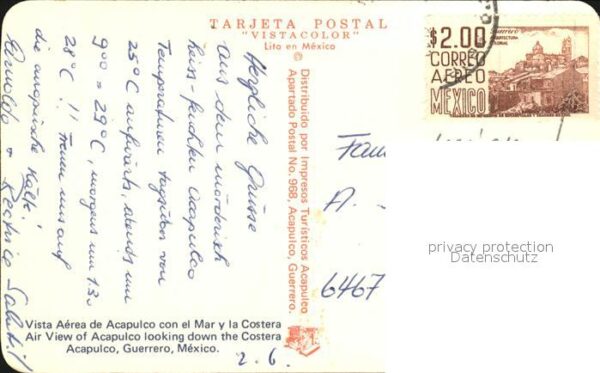 TARJETA POSTAL
"VISTACOLOR"
Lito en México
$2.00
CORREO
AEREO
MÉXICO
Herzliche Grüsse
aus dem mörderisch
heiss-feuchten Acapulco
Temperaturen tagsüber von
25°C aufwärts, abends um
9°° = 29°C, morgens um 1.30
28°C !! Freuen uns auf
die europäische Kälte!
Saluti!
Distribuido por Impresos Turísticos Acapulco
Apartado Postal No. 968, Acapulco, Guerrero.
Fam
A.
6467
privacy protection
Datenschutz
Vista Aérea de Acapulco con el Mar y la Costera
Air View of Acapulco looking down the Costera
Acapulco, Guerrero, México.
2.6.